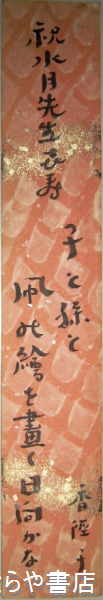 祝水月先生喜寿
子と孫と
凧の繪を畫く日向かな
らや書店